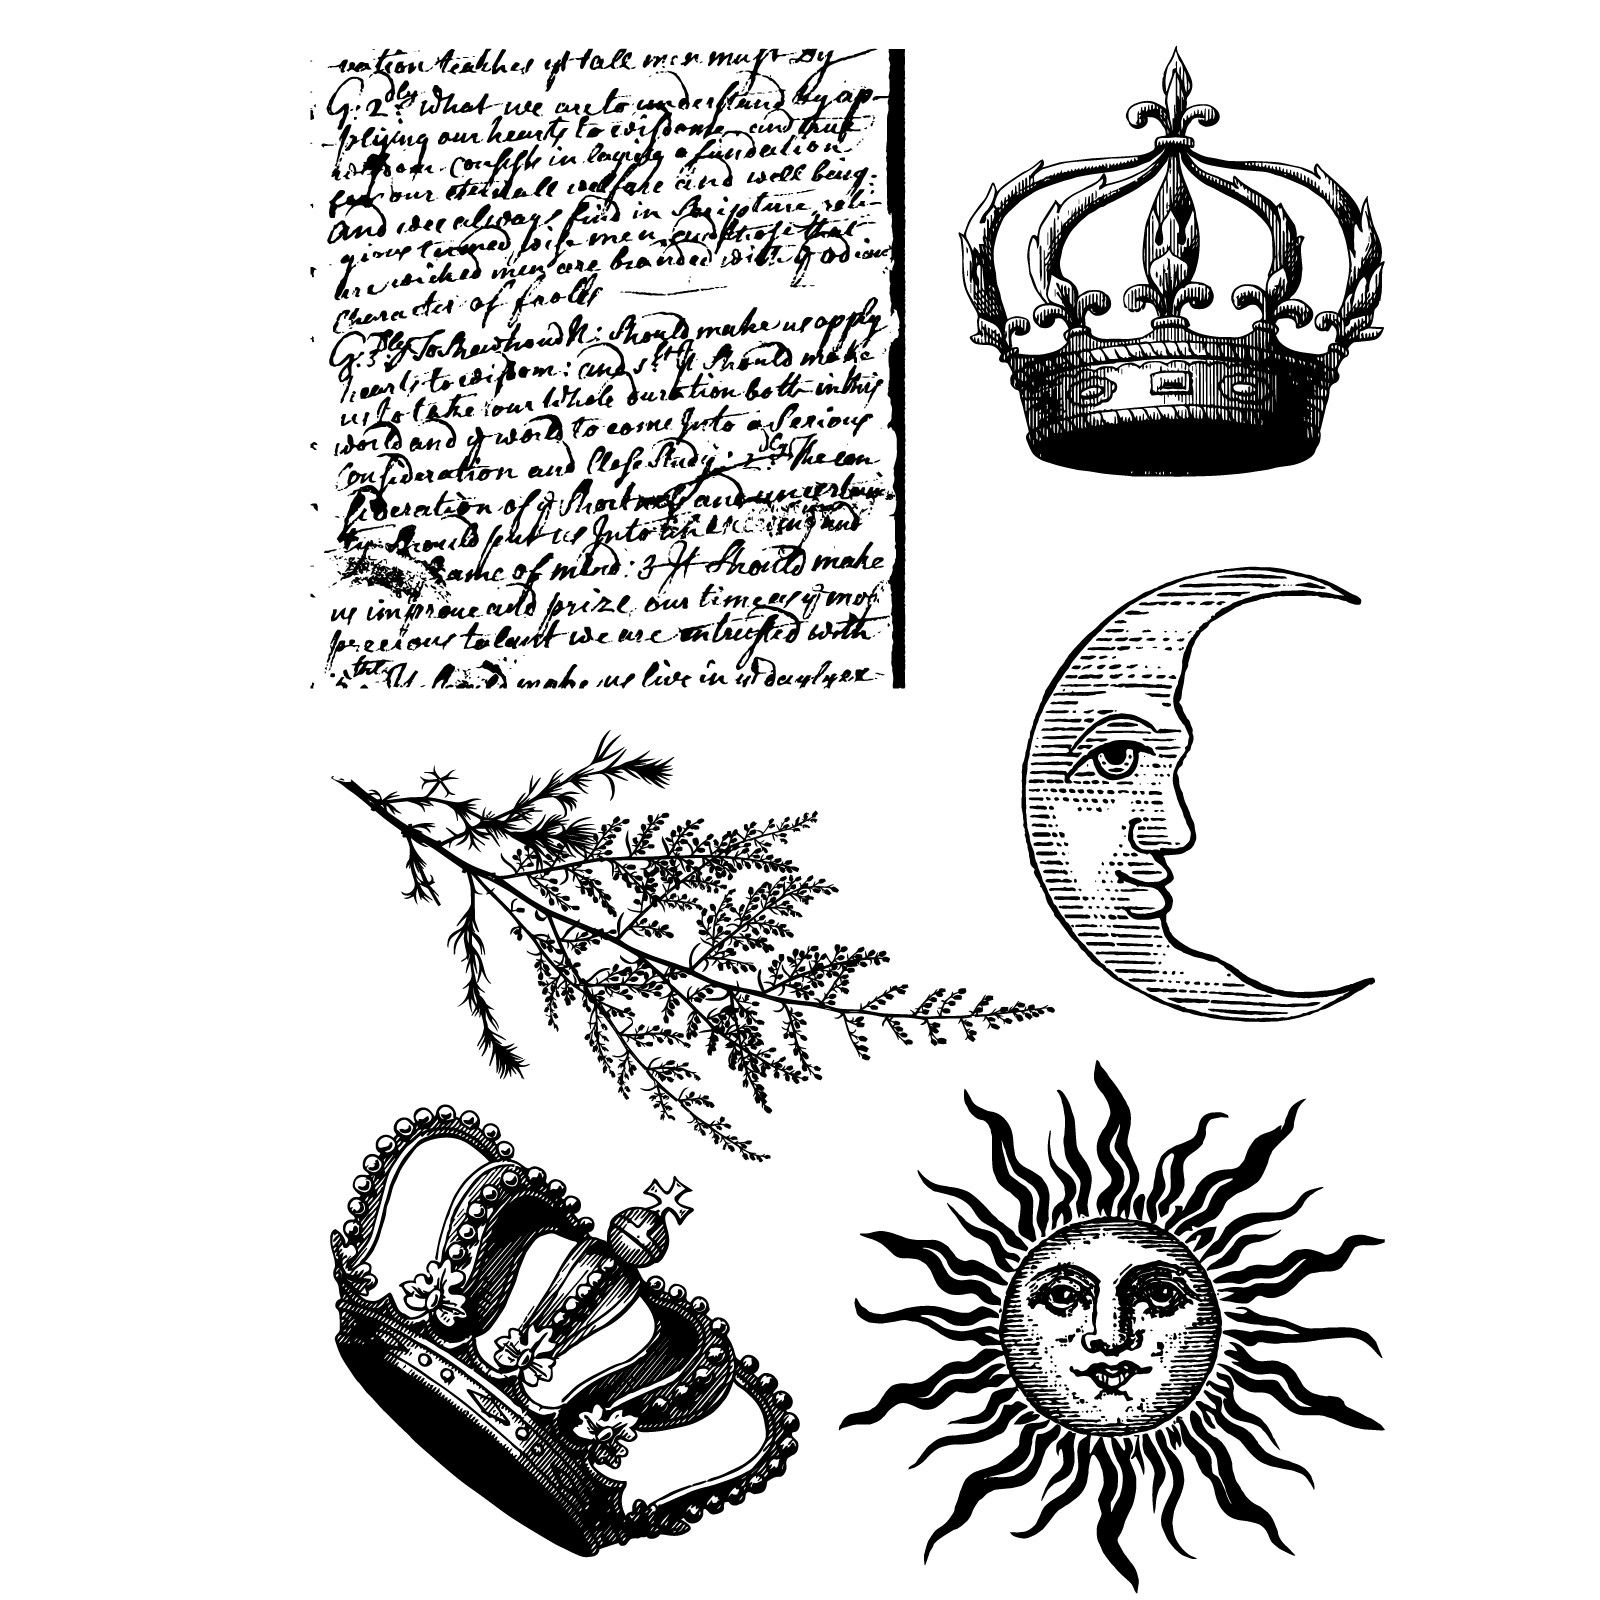 vation teaches yt all men must Dy
Q: 2dly What we are to understand by ap-
plijing our hearts to wisdome and true
wisdom consists in laying a fundation
for our eternall welfare and well being.
and wee always find in Scripture reli-
gious turned wise men and those that
are wicked men are branded with ye odious
Character of foolls
Q: 3dly To Shew how N: Should make us apply
hearts to wisdom: and 1st It Should make
us to take our Whole duration both in this
world and ye world to come Into a Serious
Consideration and Close Study: 2dly The con
sideration of ye Shortness and uncertain
ty Should put us Into and
frame of mind: 3 It Should make
us improve and prize our time as ye most
precious talant we are intrusted with
4thly It Should make us live in ye dayly ex-